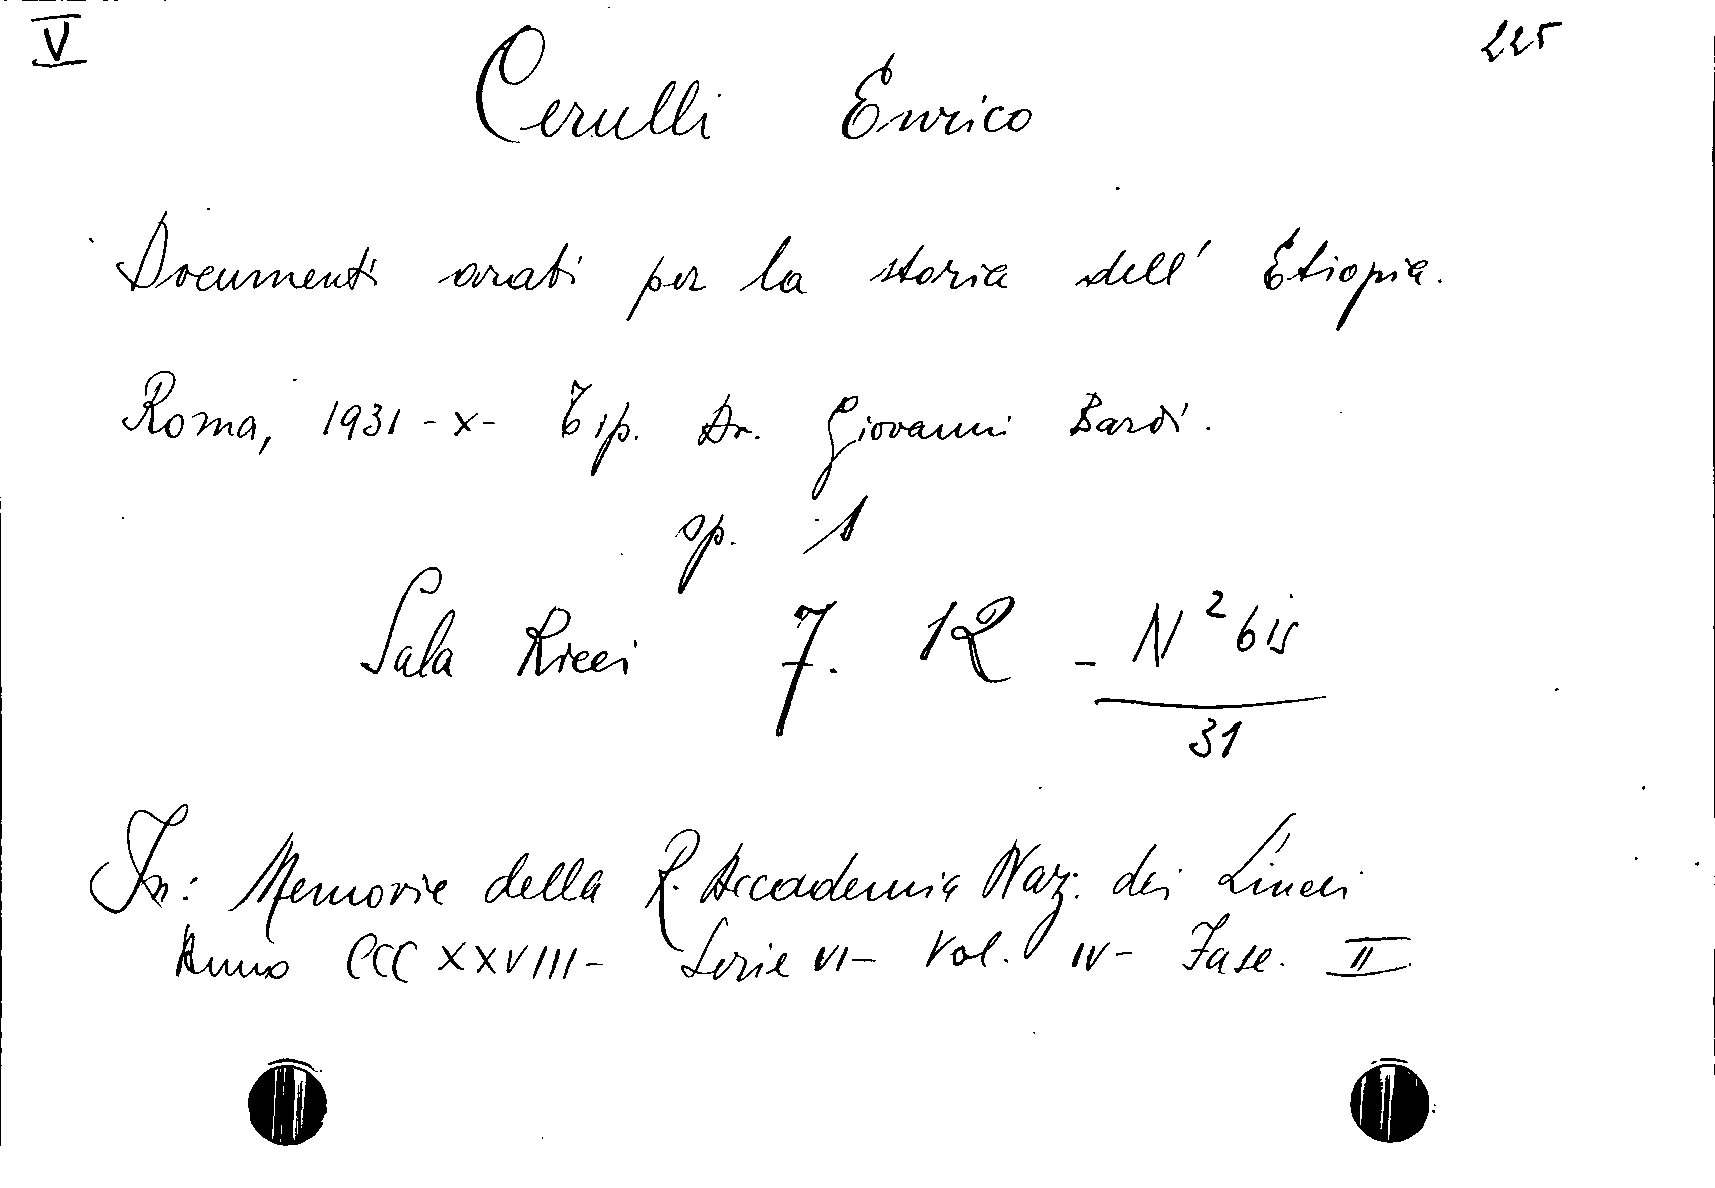 V 225
Cerulli Enrico
Documenti arabi per la storia dell' Etiopia.
Roma, 1931 - X - Tip. Dr. Giovanni Bardi.
op. 1
Sala Ricci 7. R - N 2 bis
31
In: Memorie della R. Accademia Naz. dei Lincei
Anno CCCXXVIII - Serie VI - Vol. IV - Fasc. II